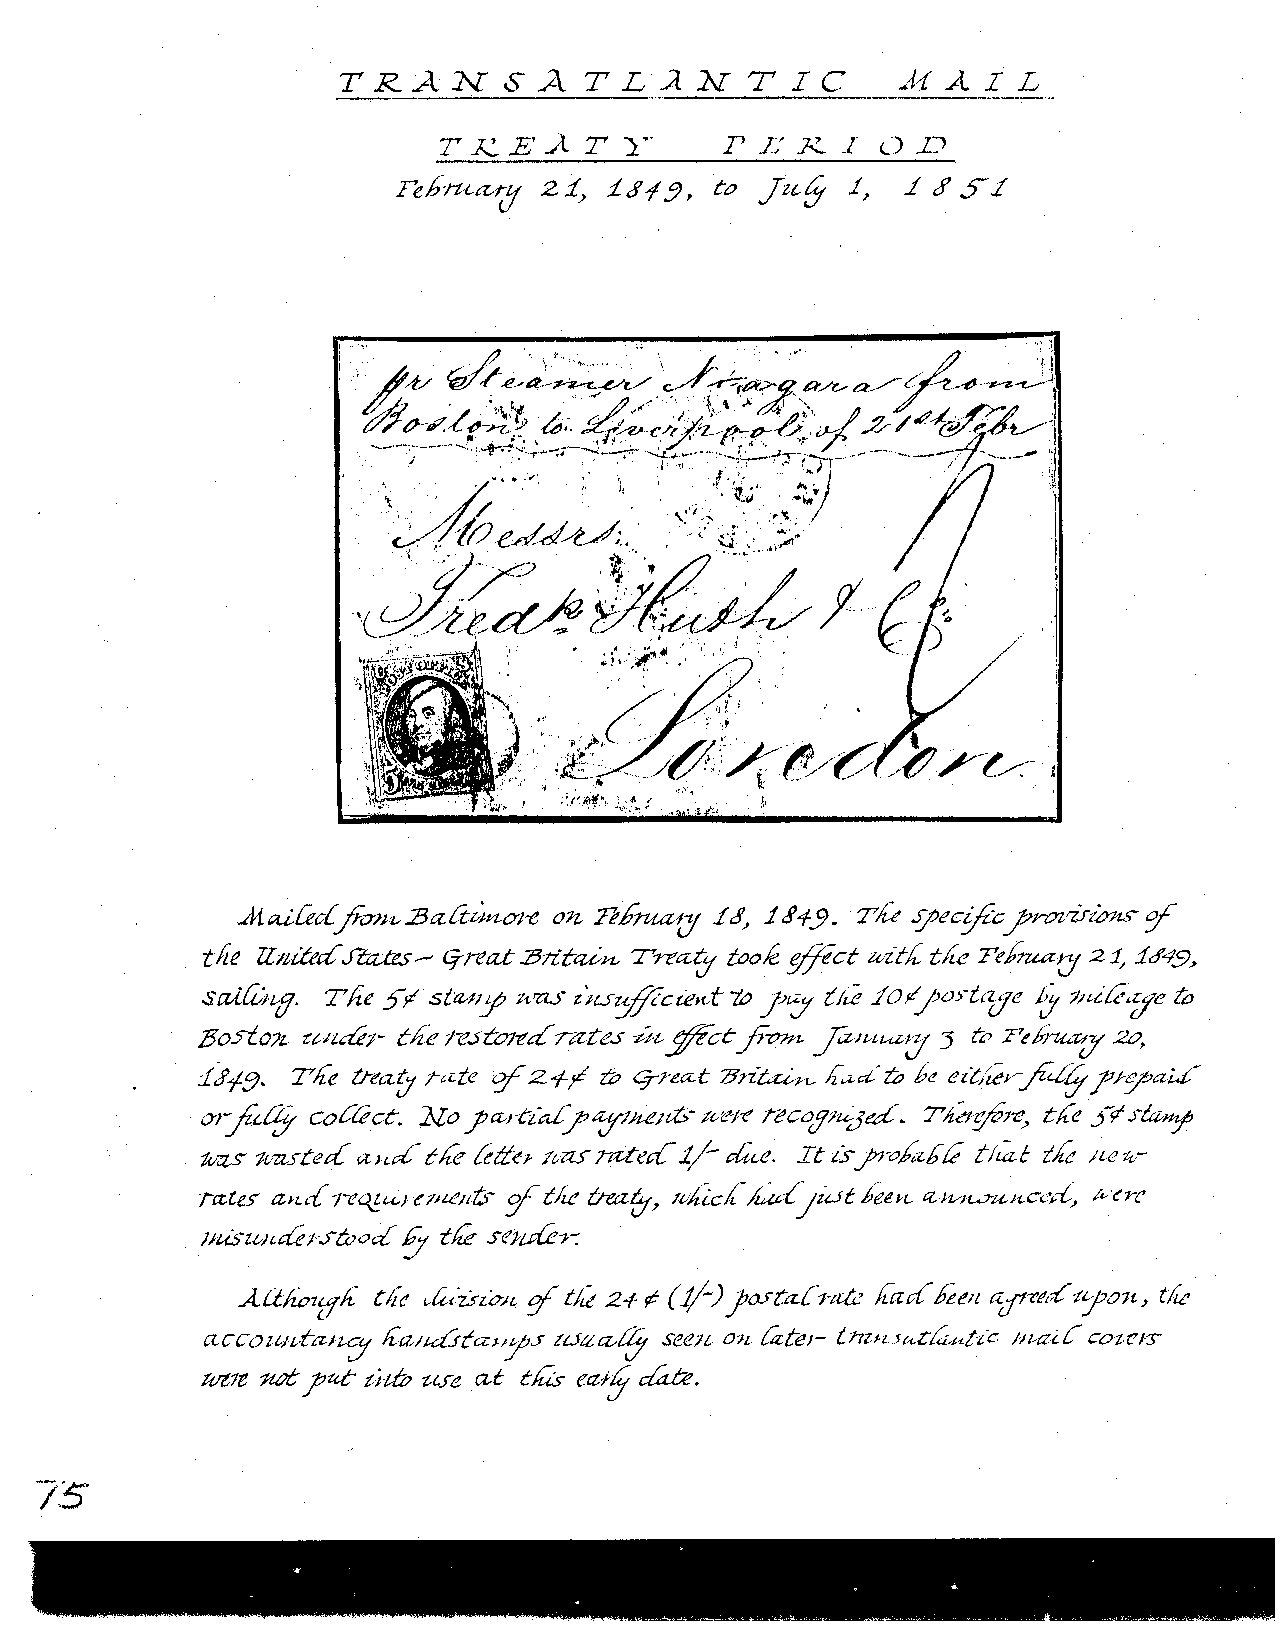 TRANSATLANTIC MAIL
TREATY PERIOD
February 21, 1849, to July 1, 1851
pr Steamer Niagara from
Boston to Liverpool of 21st Febr
Messrs.
Fredk Huth & Co.
London
Mailed from Baltimore on February 18, 1849. The specific provisions of
the United States - Great Britain Treaty took effect with the February 21, 1849,
sailing. The 5¢ stamp was insufficient to pay the 10¢ postage by mileage to
Boston under the restored rates in effect from January 3 to February 20,
1849. The treaty rate of 24¢ to Great Britain had to be either fully prepaid
or fully collect. No partial payments were recognized. Therefore, the 5¢ stamp
was wasted and the letter was rated 1/- due. It is probable that the new
rates and requirements of the treaty, which had just been announced, were
misunderstood by the sender.
Although the division of the 24¢ (1/-) postal rate had been agreed upon, the
accountancy handstamps usually seen on later transatlantic mail covers
were not put into use at this early date.
75